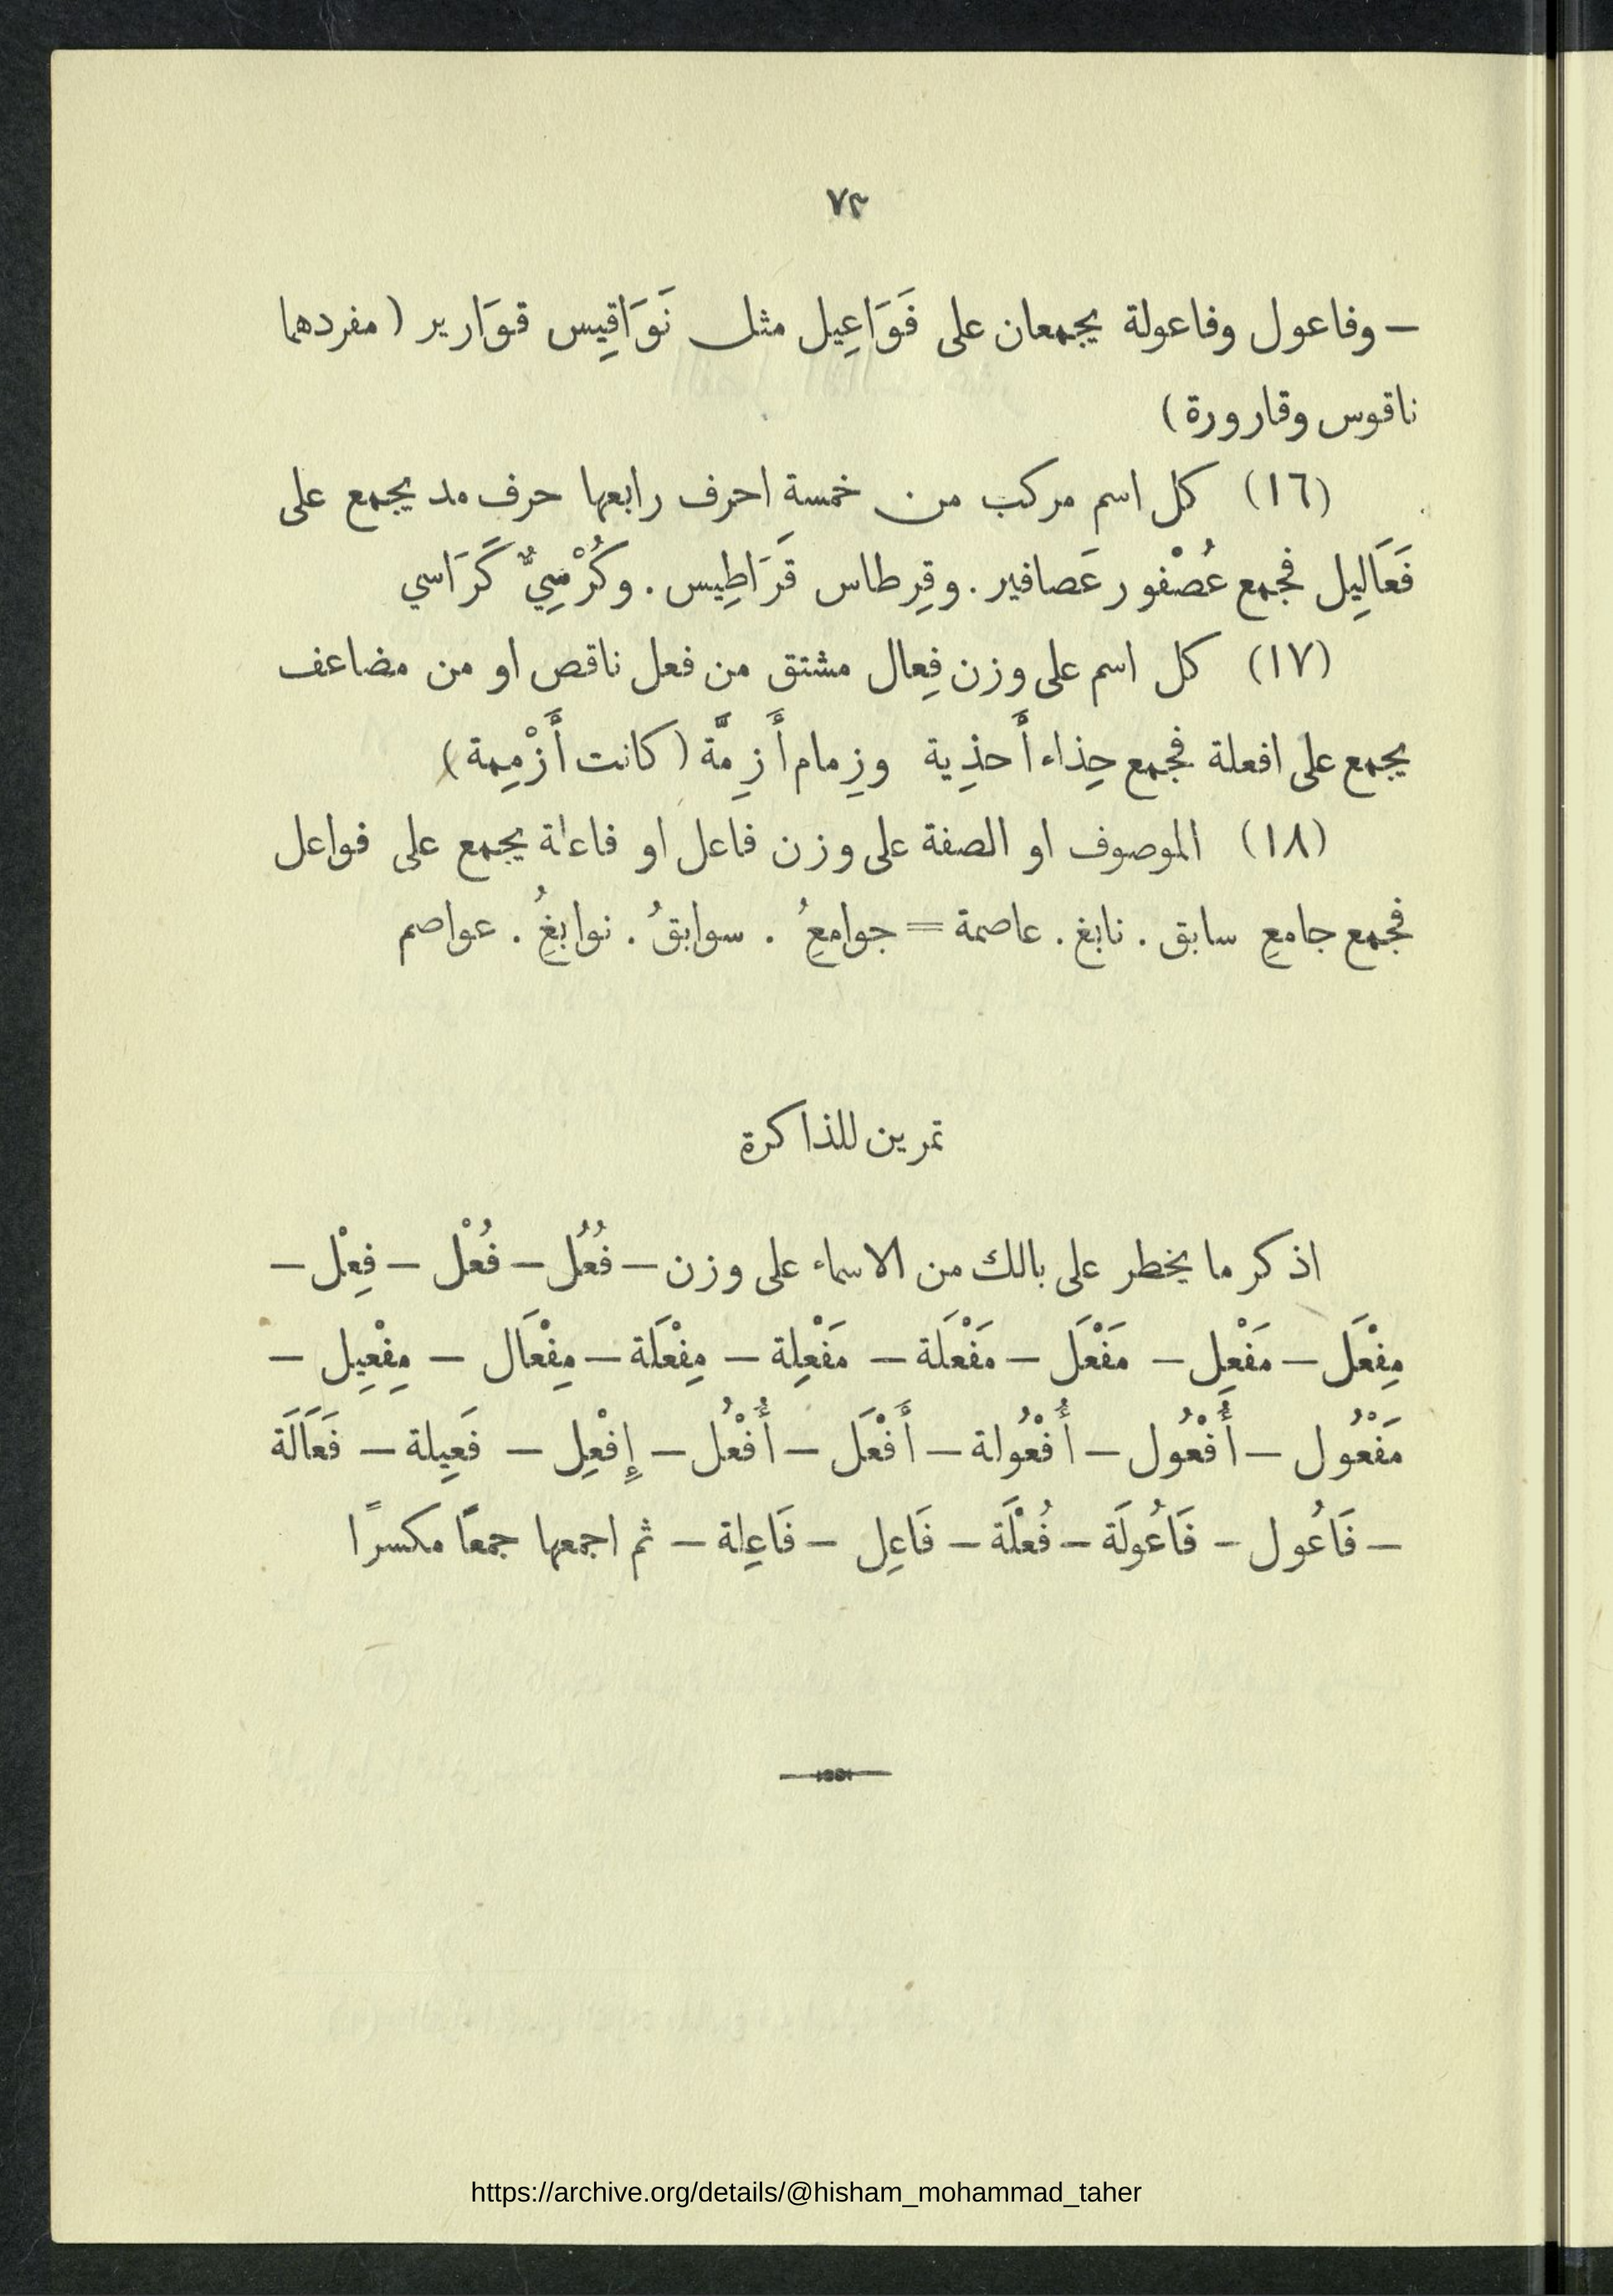 ٧٢
— وفاعول وفاعولة يجمعان على فَوَاعِيل مثل نَوَاقِيس قوَارير (مفردهما
ناقوس وقارورة)
(١٦) كل اسم مركب من خمسة احرف رابعها حرف مد يجمع على
فَعَالِيل فجمع عُصْفور عَصافير . وقِرطاس قَرَاطِيس . وكُرْسِيٌّ كَرَاسي
(١٧) كل اسم على وزن فِعال مشتق من فعل ناقص او من مضاعف
يجمع على افعلة فجمع حِذاء أَحذِية وزِمام أَزِمَّة (كانت أَزْمِمة)
(١٨) الموصوف او الصفة على وزن فاعل او فاعلة يجمع على فواعل
فجمع جامعِ سابق . نابغ . عاصمة = جوامعِ ُ . سوابقُ . نوابغِ ُ . عواصم
تمرين للذاكرة
اذكر ما يخطر على بالك من الاسماء على وزن — فُعُل — فُعْل — فِعْل —
مِفْعَل — مَفْعِل — مَفْعَل — مَفْعَلَة — مَفْعِلِة — مِفْعَلَة — مِفْعَال — مِفْعِيل —
مَفْعُول — أُفْعُول — أُفْعُولة — أَفْعَل — أُفْعُل — إِفْعِل — فَعِيلة — فَعَالَة
— فَاعُول — فَاعُولَة — فُعْلَة — فَاعِل — فَاعِلة — ثم اجمعها جمعًا مكسرًا
https://archive.org/details/@hisham_mohammad_taher